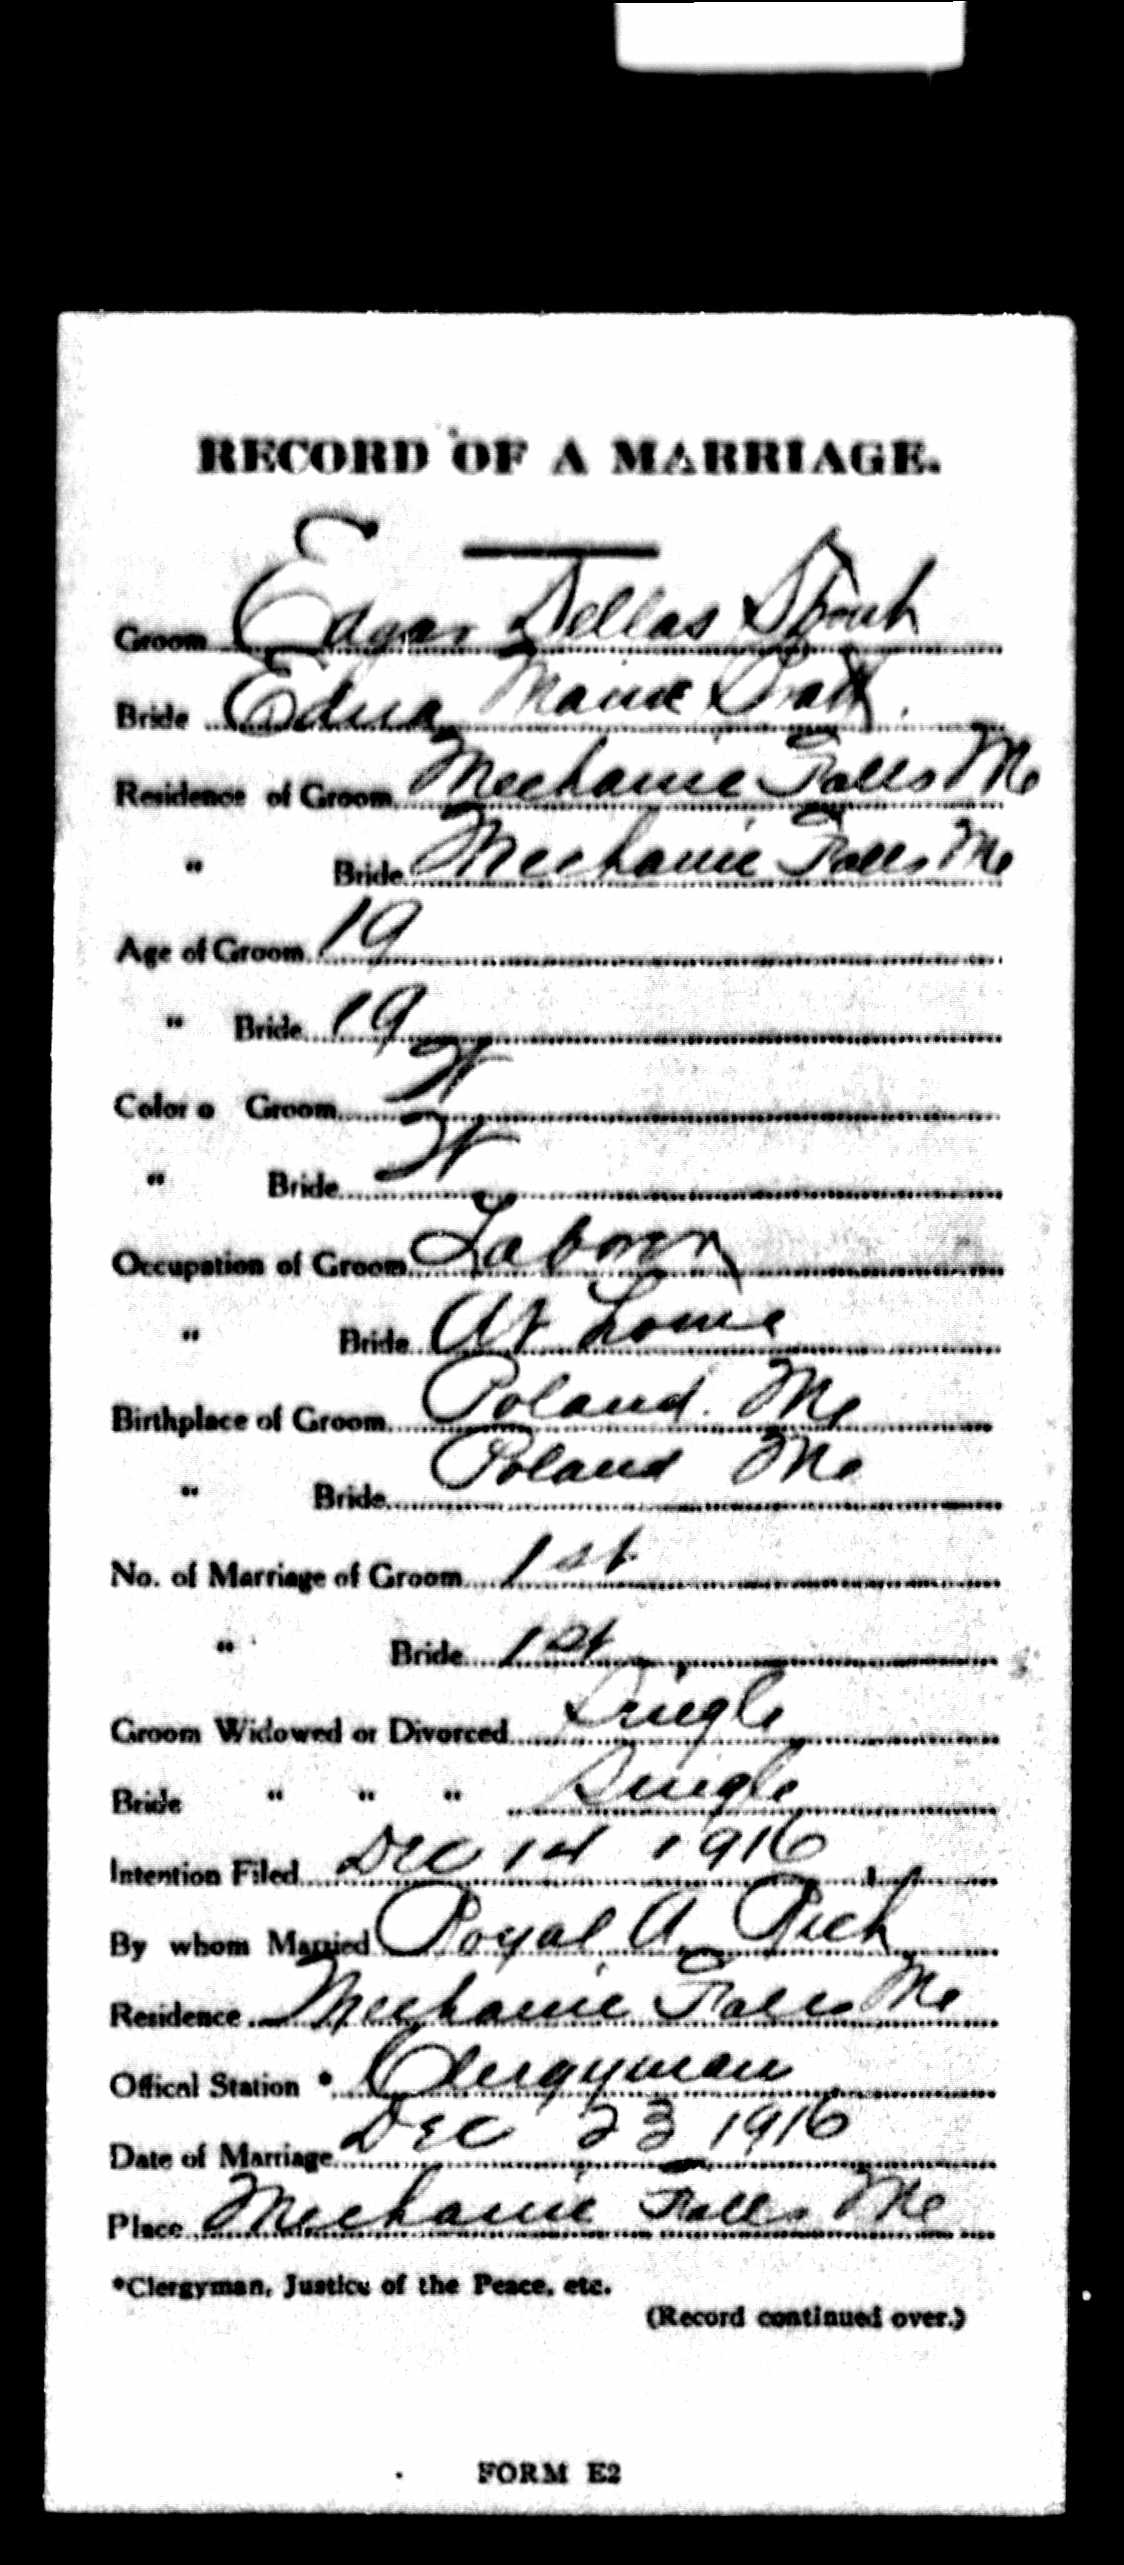 RECORD OF A MARRIAGE.
Groom Edgar Dellas Strout
Bride Edna Maud Pratt
Residence of Groom Mechanic Falls Me
" Bride Mechanic Falls Me
Age of Groom 19
" Bride 19
Color o Groom W
" Bride W
Occupation of Groom Labor
" Bride At home
Birthplace of Groom Poland. Me
" Bride Poland Me
No. of Marriage of Groom 1st
" Bride 1st
Groom Widowed or Divorced Single
Bride " " " Single
Intention Filed Dec 14 1916
By whom Married Royal A. Rich
Residence Mechanic Falls Me
Offical Station * Clergyman
Date of Marriage Dec 23 1916
Place Mechanic Falls Me
*Clergyman, Justice of the Peace, etc.
(Record continued over.)
FORM E2